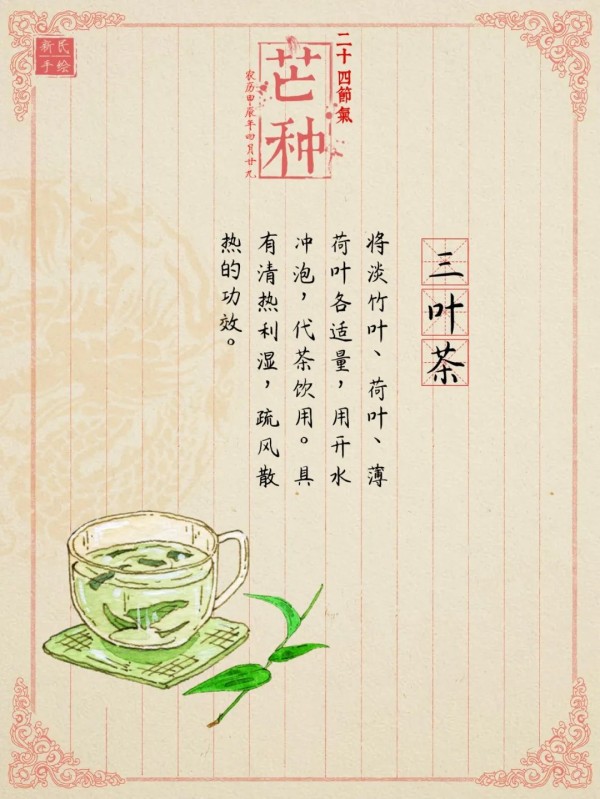 新民
手绘
二十四節氣
芒种
农历甲辰年四月廿九
三叶茶
将淡竹叶、荷叶、薄
荷叶各适量，用开水
冲泡，代茶饮用。具
有清热利湿，疏风散
热的功效。